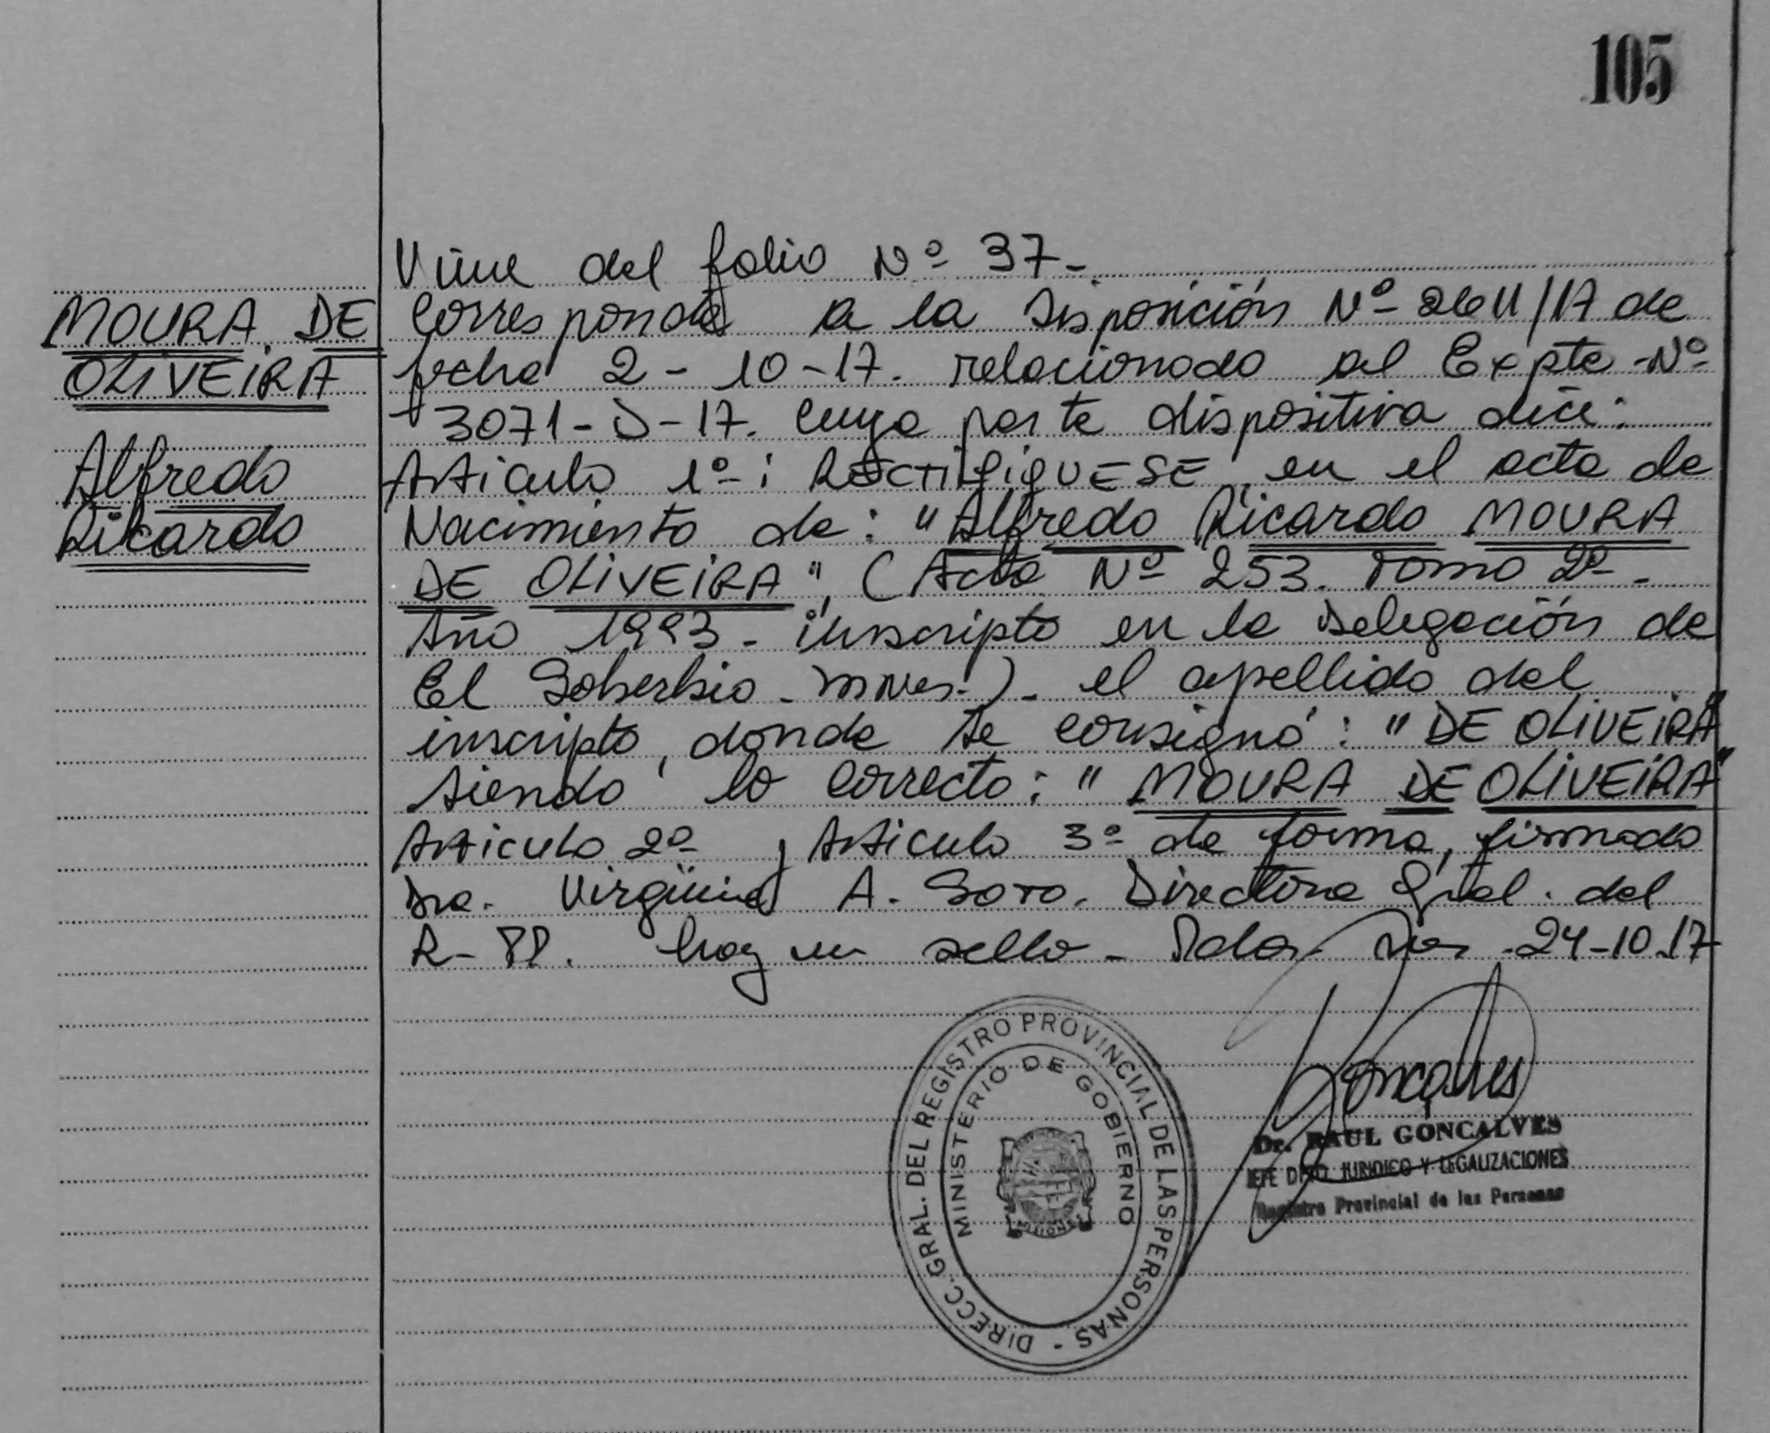 105
Viene del folio Nº 37-
MOURA DE
OLIVEIRA
Alfredo
Ricardo
Corresponde a la Disposición Nº 2611/17 de
fecha 2-10-17. relacionado al Expte-Nº
3071-D-17. cuya parte dispositiva dice:
Articulo 1º: RECTIFIQUESE, en el acta de
Nacimiento de: "Alfredo Ricardo MOURA
DE OLIVEIRA", (Acta Nº 253. Tomo 2º-
Año 1993- inscripto en la Delegación de
El Soberbio-Mnes.)- el apellido del
inscripto, donde se consignó: "DE OLIVEIRA"
siendo lo correcto: "MOURA DE OLIVEIRA"
Articulo 2º y Articulo 3º de forma, firmado
Dra. Virginia A. Soto. Directora Gral. del
R-PP. hay un sello- Pdas 24-10-17
DIRECC. GRAL. DEL REGISTRO PROVINCIAL DE LAS PERSONAS -
MINISTERIO DE GOBIERNO
MISIONES
Goncalves
Dr. RAUL GONCALVES
JEFE DPTO. JURIDICO Y LEGALIZACIONES
Registro Provincial de las Personas